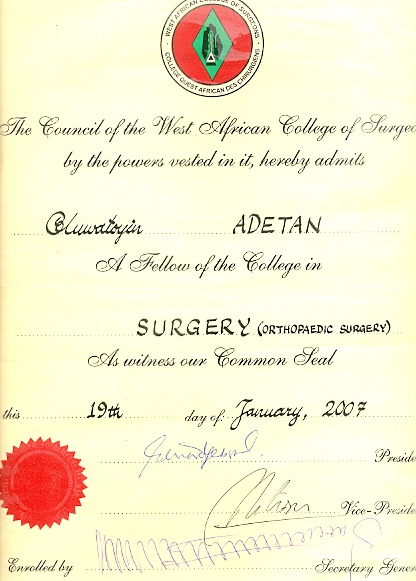 WEST AFRICAN COLLEGE OF SURGEONS
COLLEGE OUEST AFRICAIN DES CHIRURGIENS
The Council of the West African College of Surgeo
by the powers vested in it, hereby admits
Oluwatoyin ADETAN
A Fellow of the College in
SURGERY (ORTHOPAEDIC SURGERY)
As witness our Common Seal
this 19th day of January, 2007
Preside
Vice-Preside
Enrolled by Secretary Gener